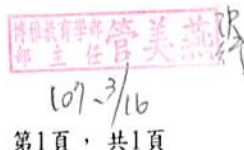 博雅教育學部
部主任 管美燕
107-3/16
第1頁，共1頁